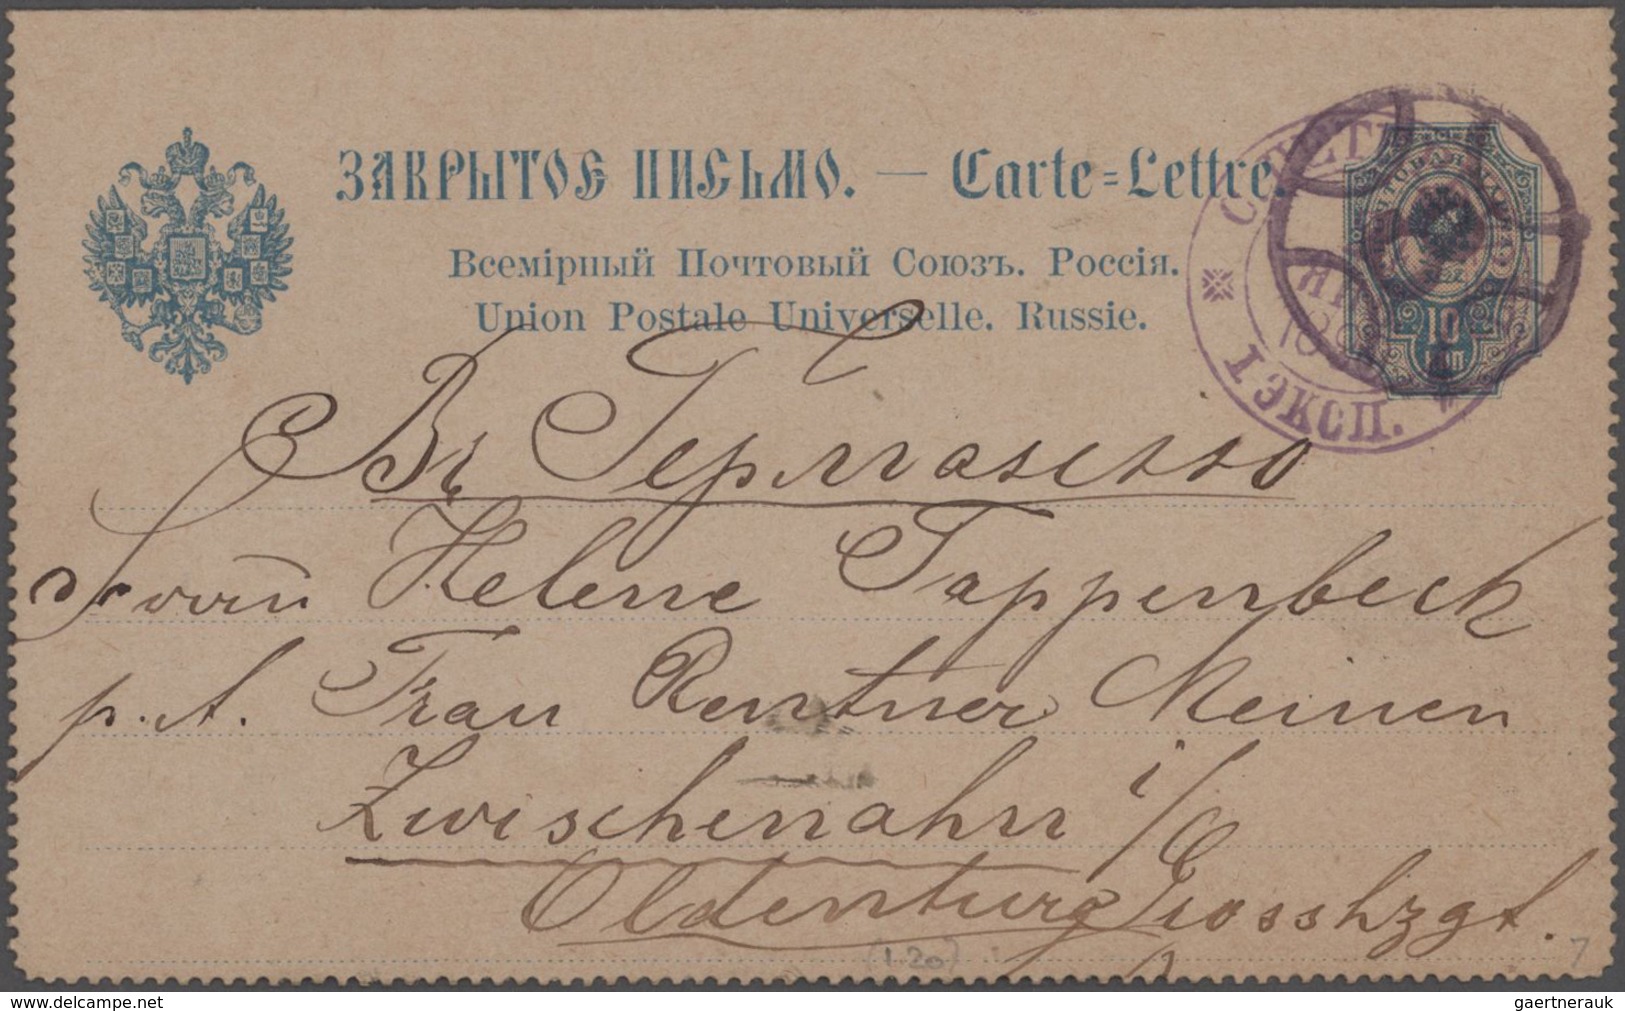 ЗАКРЫТОЕ ПИСЬМО. — Carte=Lettre.
Всемірный Почтовый Союзъ. Россія.
Union Postale Universelle. Russie.
10
КОП
189
* I ЭКСП. *
Въ Германію
Helene Tappenbeck
p. A. Frau Rentner Meinen
Zwischenahn i/O
Oldenburg Grosshzgt.
(1.20)
7
www.delcampe.net
gaertnerauk